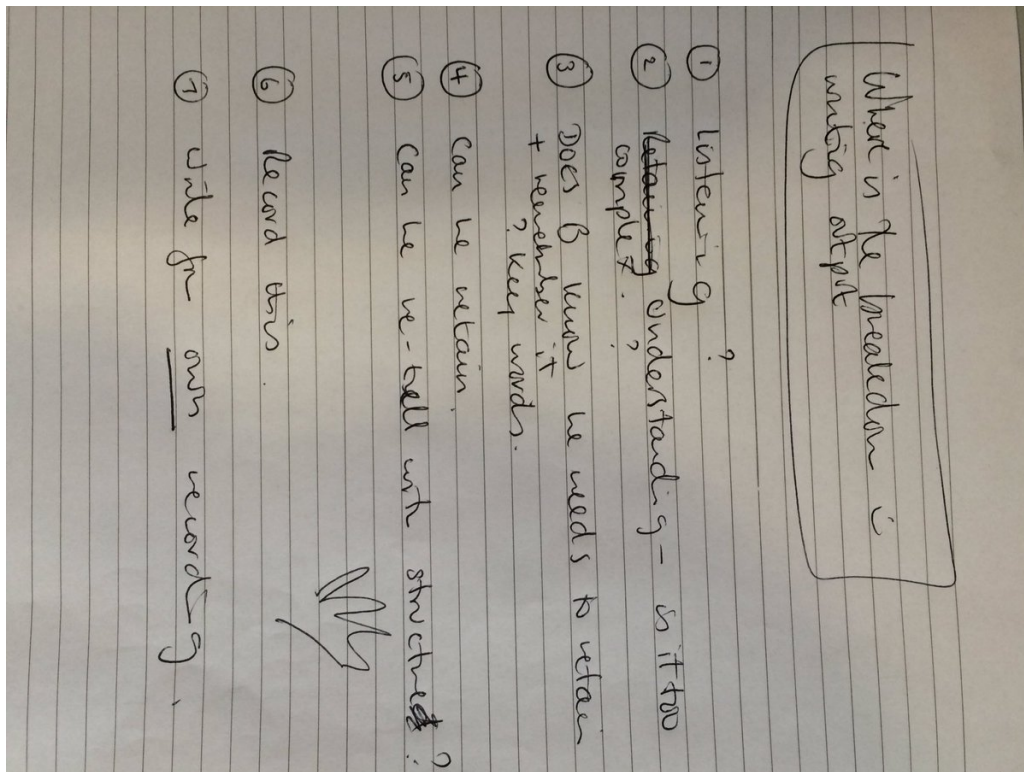 Where is the breakdown in
writing output
① Listening?
② Retaining Understanding - is it too
complex?
③ Does B know he needs to retain
+ remember it
? key words.
④ Can he retain.
⑤ Can he re-tell with structure?
⑥ Record this.
⑦ Write from own recording.